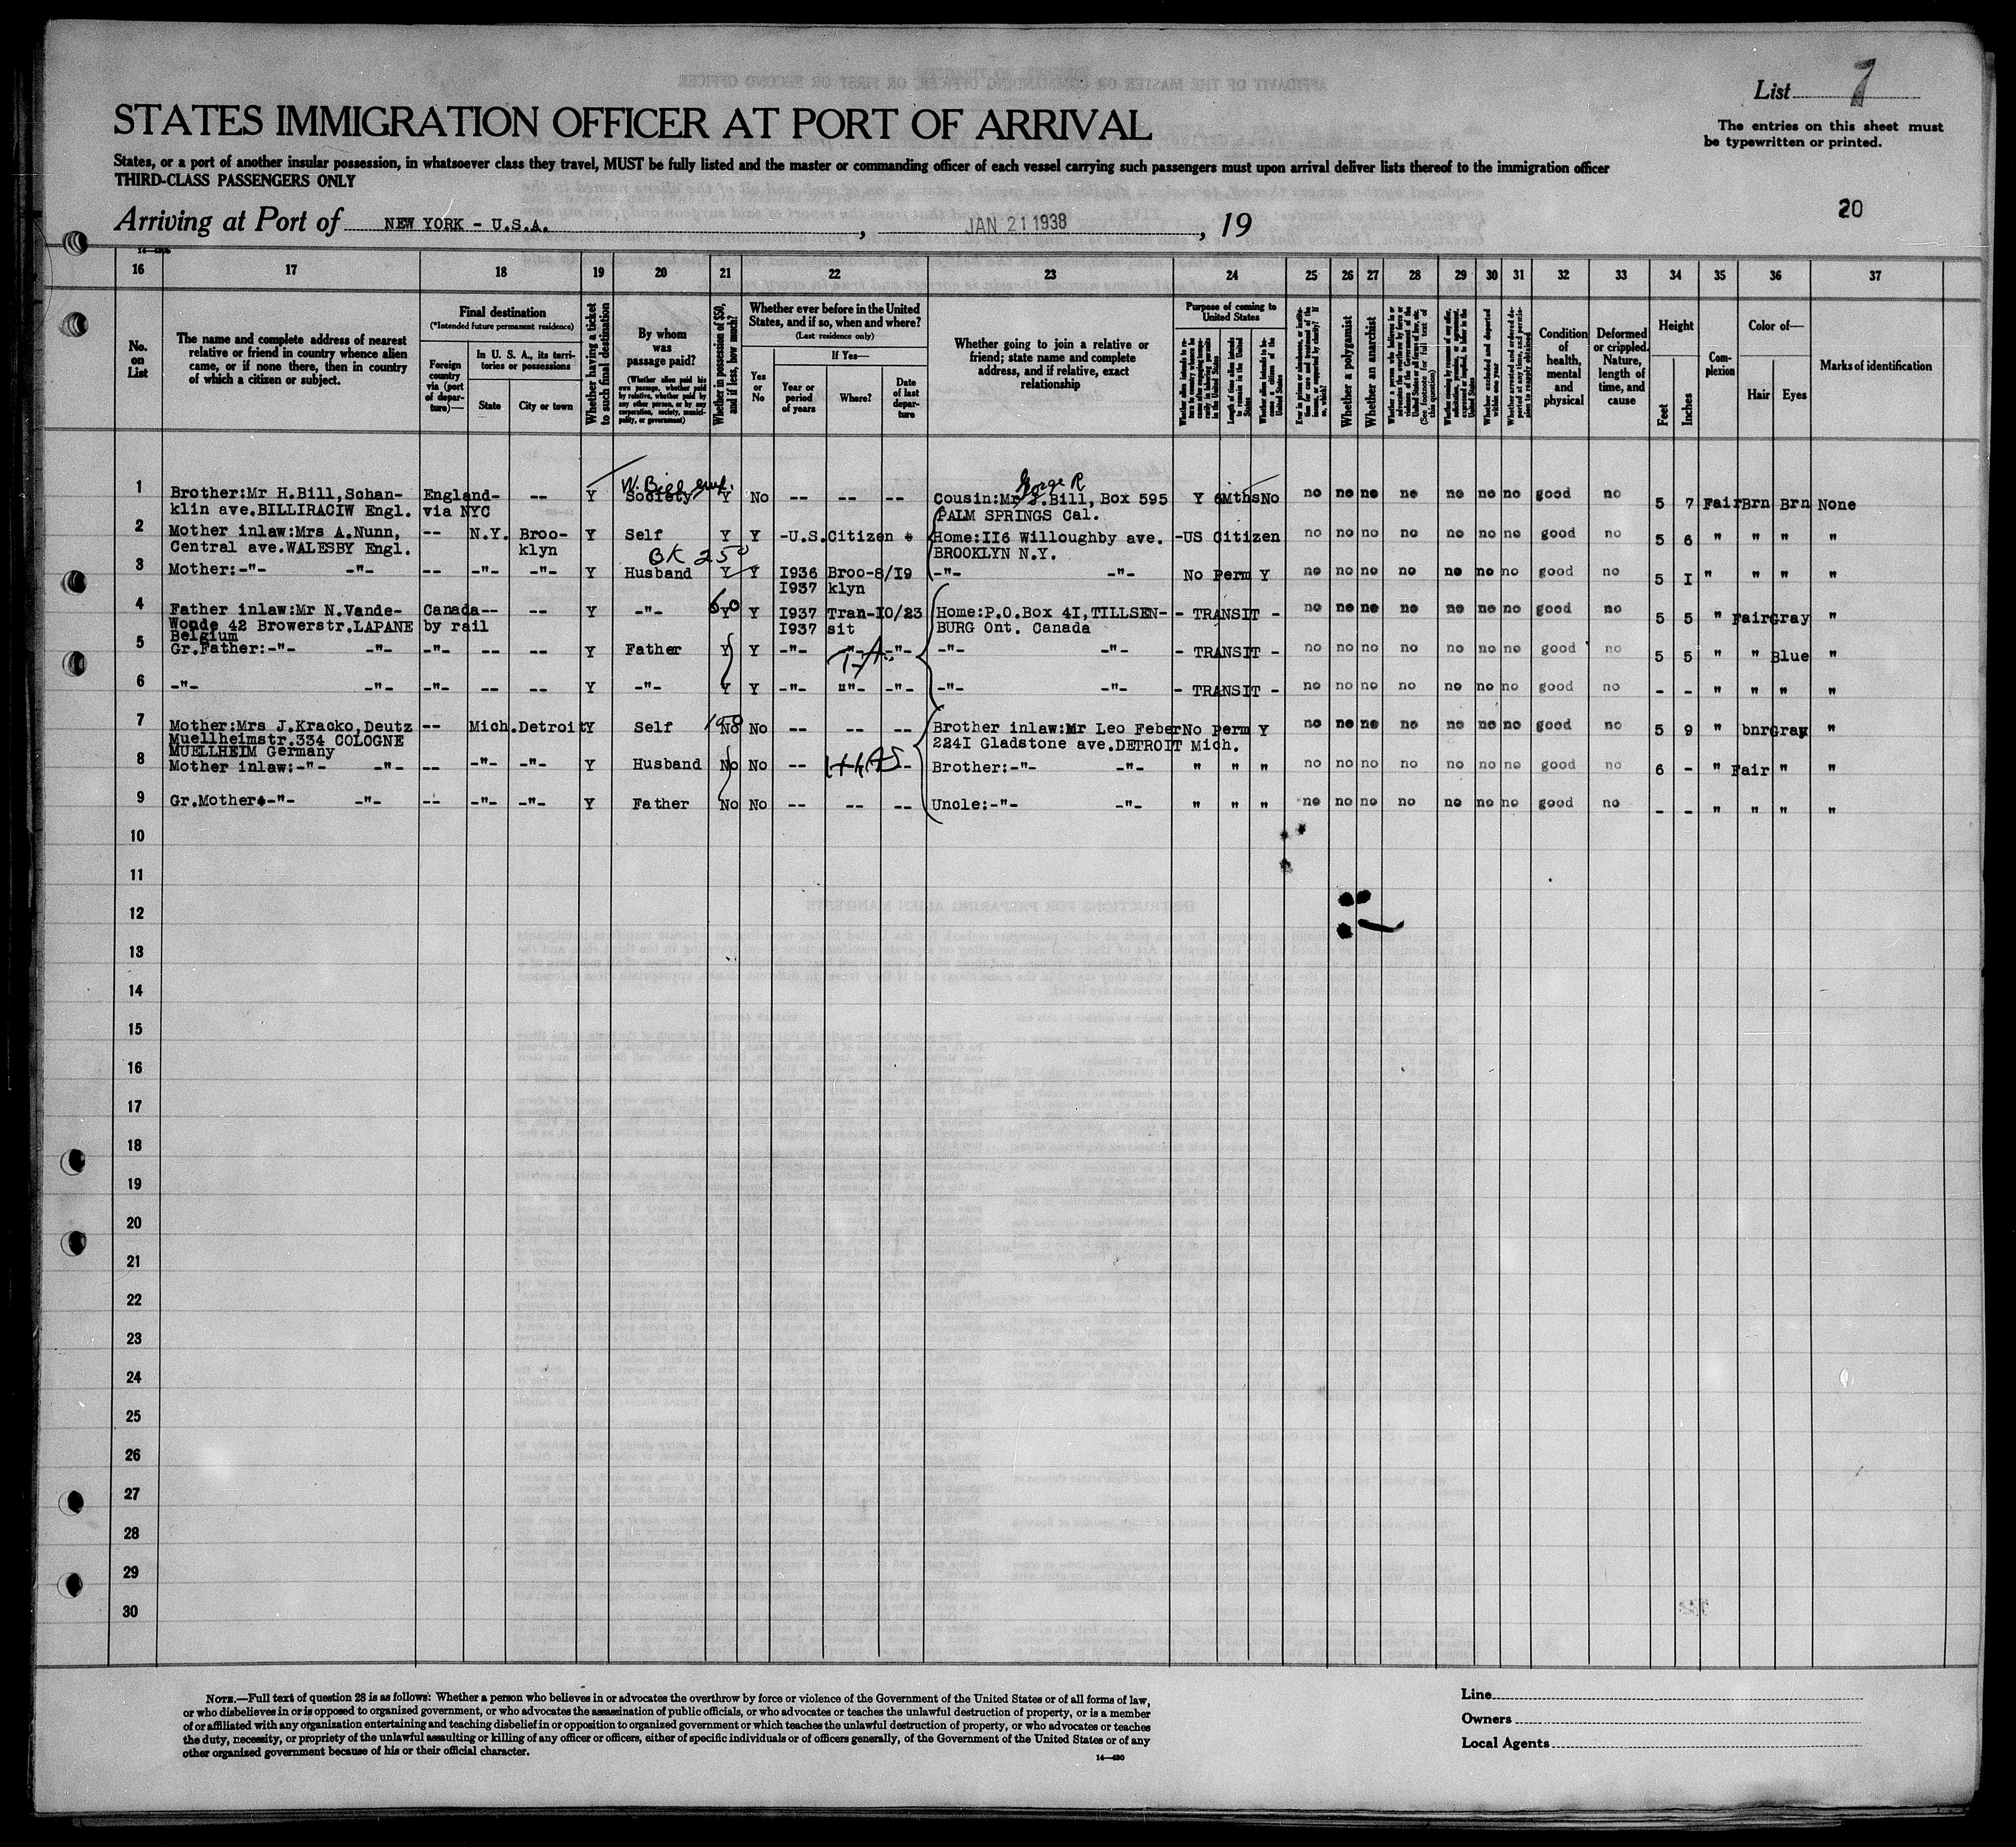 List 7
STATES IMMIGRATION OFFICER AT PORT OF ARRIVAL
The entries on this sheet must
be typewritten or printed.
States, or a port of another insular possession, in whatsoever class they travel, MUST be fully listed and the master or commanding officer of each vessel carrying such passengers must upon arrival deliver lists thereof to the immigration officer
THIRD-CLASS PASSENGERS ONLY
20
Arriving at Port of NEW YORK - U.S.A. , JAN 21 1938 , 19
16 17 18 19 20 21 22 23 24 25 26 27 28 29 30 31 32 33 34 35 36 37
No.
on
List
The name and complete address of nearest
relative or friend in country whence alien
came, or if none there, then in country
of which a citizen or subject.
Final destination
(*Intended future permanent residence)
Foreign
country
via (port
of depar-
ture)—
In U. S. A., its terri-
tories or possessions
State
City or town
Whether having a ticket
to such final destination
By whom
was
passage paid?
(Whether alien paid his
own passage, whether paid
by relative, whether paid by
any other person, or by any
corporation, society, munici-
pality, or government)
Whether in possession of $50,
and if less, how much?
Whether ever before in the United
States, and if so, when and where?
(Last residence only)
Yes
or
No
If Yes—
Year or
period
of years
Where?
Date
of last
depar-
ture
Whether going to join a relative or
friend; state name and complete
address, and if relative, exact
relationship
Purpose of coming to
United States
Length of time alien intends
to remain in the United
States
Whether alien intends to be-
come a citizen of the
United States
Whether a polygamist
Whether an anarchist
Condition
of
health,
mental
and
physical
Deformed
or crippled.
Nature,
length of
time, and
cause
Height
Feet
Inches
Com-
plexion
Color of—
Hair
Eyes
Marks of identification
1 Brother:Mr H.Bill,Schan- England- -- Y Society Y No -- -- -- Cousin:Mr J.Bill, Box 595 Y 6Mths No no no no no no no no good no 5 7 Fair Brn Brn None
George R
klin ave.BILLIRACIW Engl. via NYC PALM SPRINGS Cal.
2 Mother inlaw:Mrs A.Nunn, -- N.Y. Broo- Y Self Y Y -U.S.Citizen Home:II6 Willoughby ave. -US Citizen no no no no no no no good no 5 6 " " " "
Central ave.WALESBY Engl. klyn BROOKLYN N.Y.
3 Mother:-"- -"- -- -"- -"- Y Husband Y Y I936 Broo- 8/I9 -"- -"- No perm Y no no no no no no no good no 5 I " " " "
I937 klyn
4 Father inlaw:Mr N.Vande- Canada-- -- Y -"- Y Y I937 Tran- I0/23 Home:P.O.Box 4I,TILLSEN- - TRANSIT - no no no no no no no good no 5 5 " Fair Gray "
60
Wonde 42 Browerstr.LAPANE by rail I937 sit BURG Ont. Canada
Belgium
5 Gr.Father:-"- -"- -"- -- -- Y Father Y Y -"- -"- -"- -"- -"- - TRANSIT - no no no no no no no good no 5 5 " " Blue "
6 -"- -"- -"- -- -- Y -"- Y Y -"- "- -"- -"- -"- - TRANSIT - no no no no no no no good no - - " " " "
7 Mother:Mrs J.Kracko,Deutz -- Mich. Detroit Y Self No No -- -- -- Brother inlaw:Mr Leo Feber No perm Y no no no no no no no good no 5 9 " bnr Gray "
150
Muellheimstr.334 COLOGNE 224I Gladstone ave.DETROIT Mich.
MUELLHEIM Germany
8 Mother inlaw:-"- -"- -- -"- -"- Y Husband No No -- -- Brother:-"- -"- " " " no no no no no no no good no 6 - " Fair " "
9 Gr.Mother:-"- -"- -- -"- -"- Y Father No No -- -- -- Uncle:-"- -"- " " " no no no no no no no good no - - " " " "
10
11
12
13
14
15
16
17
18
19
20
21
22
23
24
25
26
27
28
29
30
NOTE.—Full text of question 28 is as follows: Whether a person who believes in or advocates the overthrow by force or violence of the Government of the United States or of all forms of law,
or who disbelieves in or is opposed to organized government, or who advocates the assassination of public officials, or who advocates or teaches the unlawful destruction of property, or is a member
of or affiliated with any organization entertaining and teaching disbelief in or opposition to organized government or which teaches the unlawful destruction of property, or who advocates or teaches
the duty, necessity, or propriety of the unlawful assaulting or killing of any officer or officers, either of specific individuals or of officers generally, of the Government of the United States or of any
other organized government because of his or their official character.
14—430
Line
Owners
Local Agents